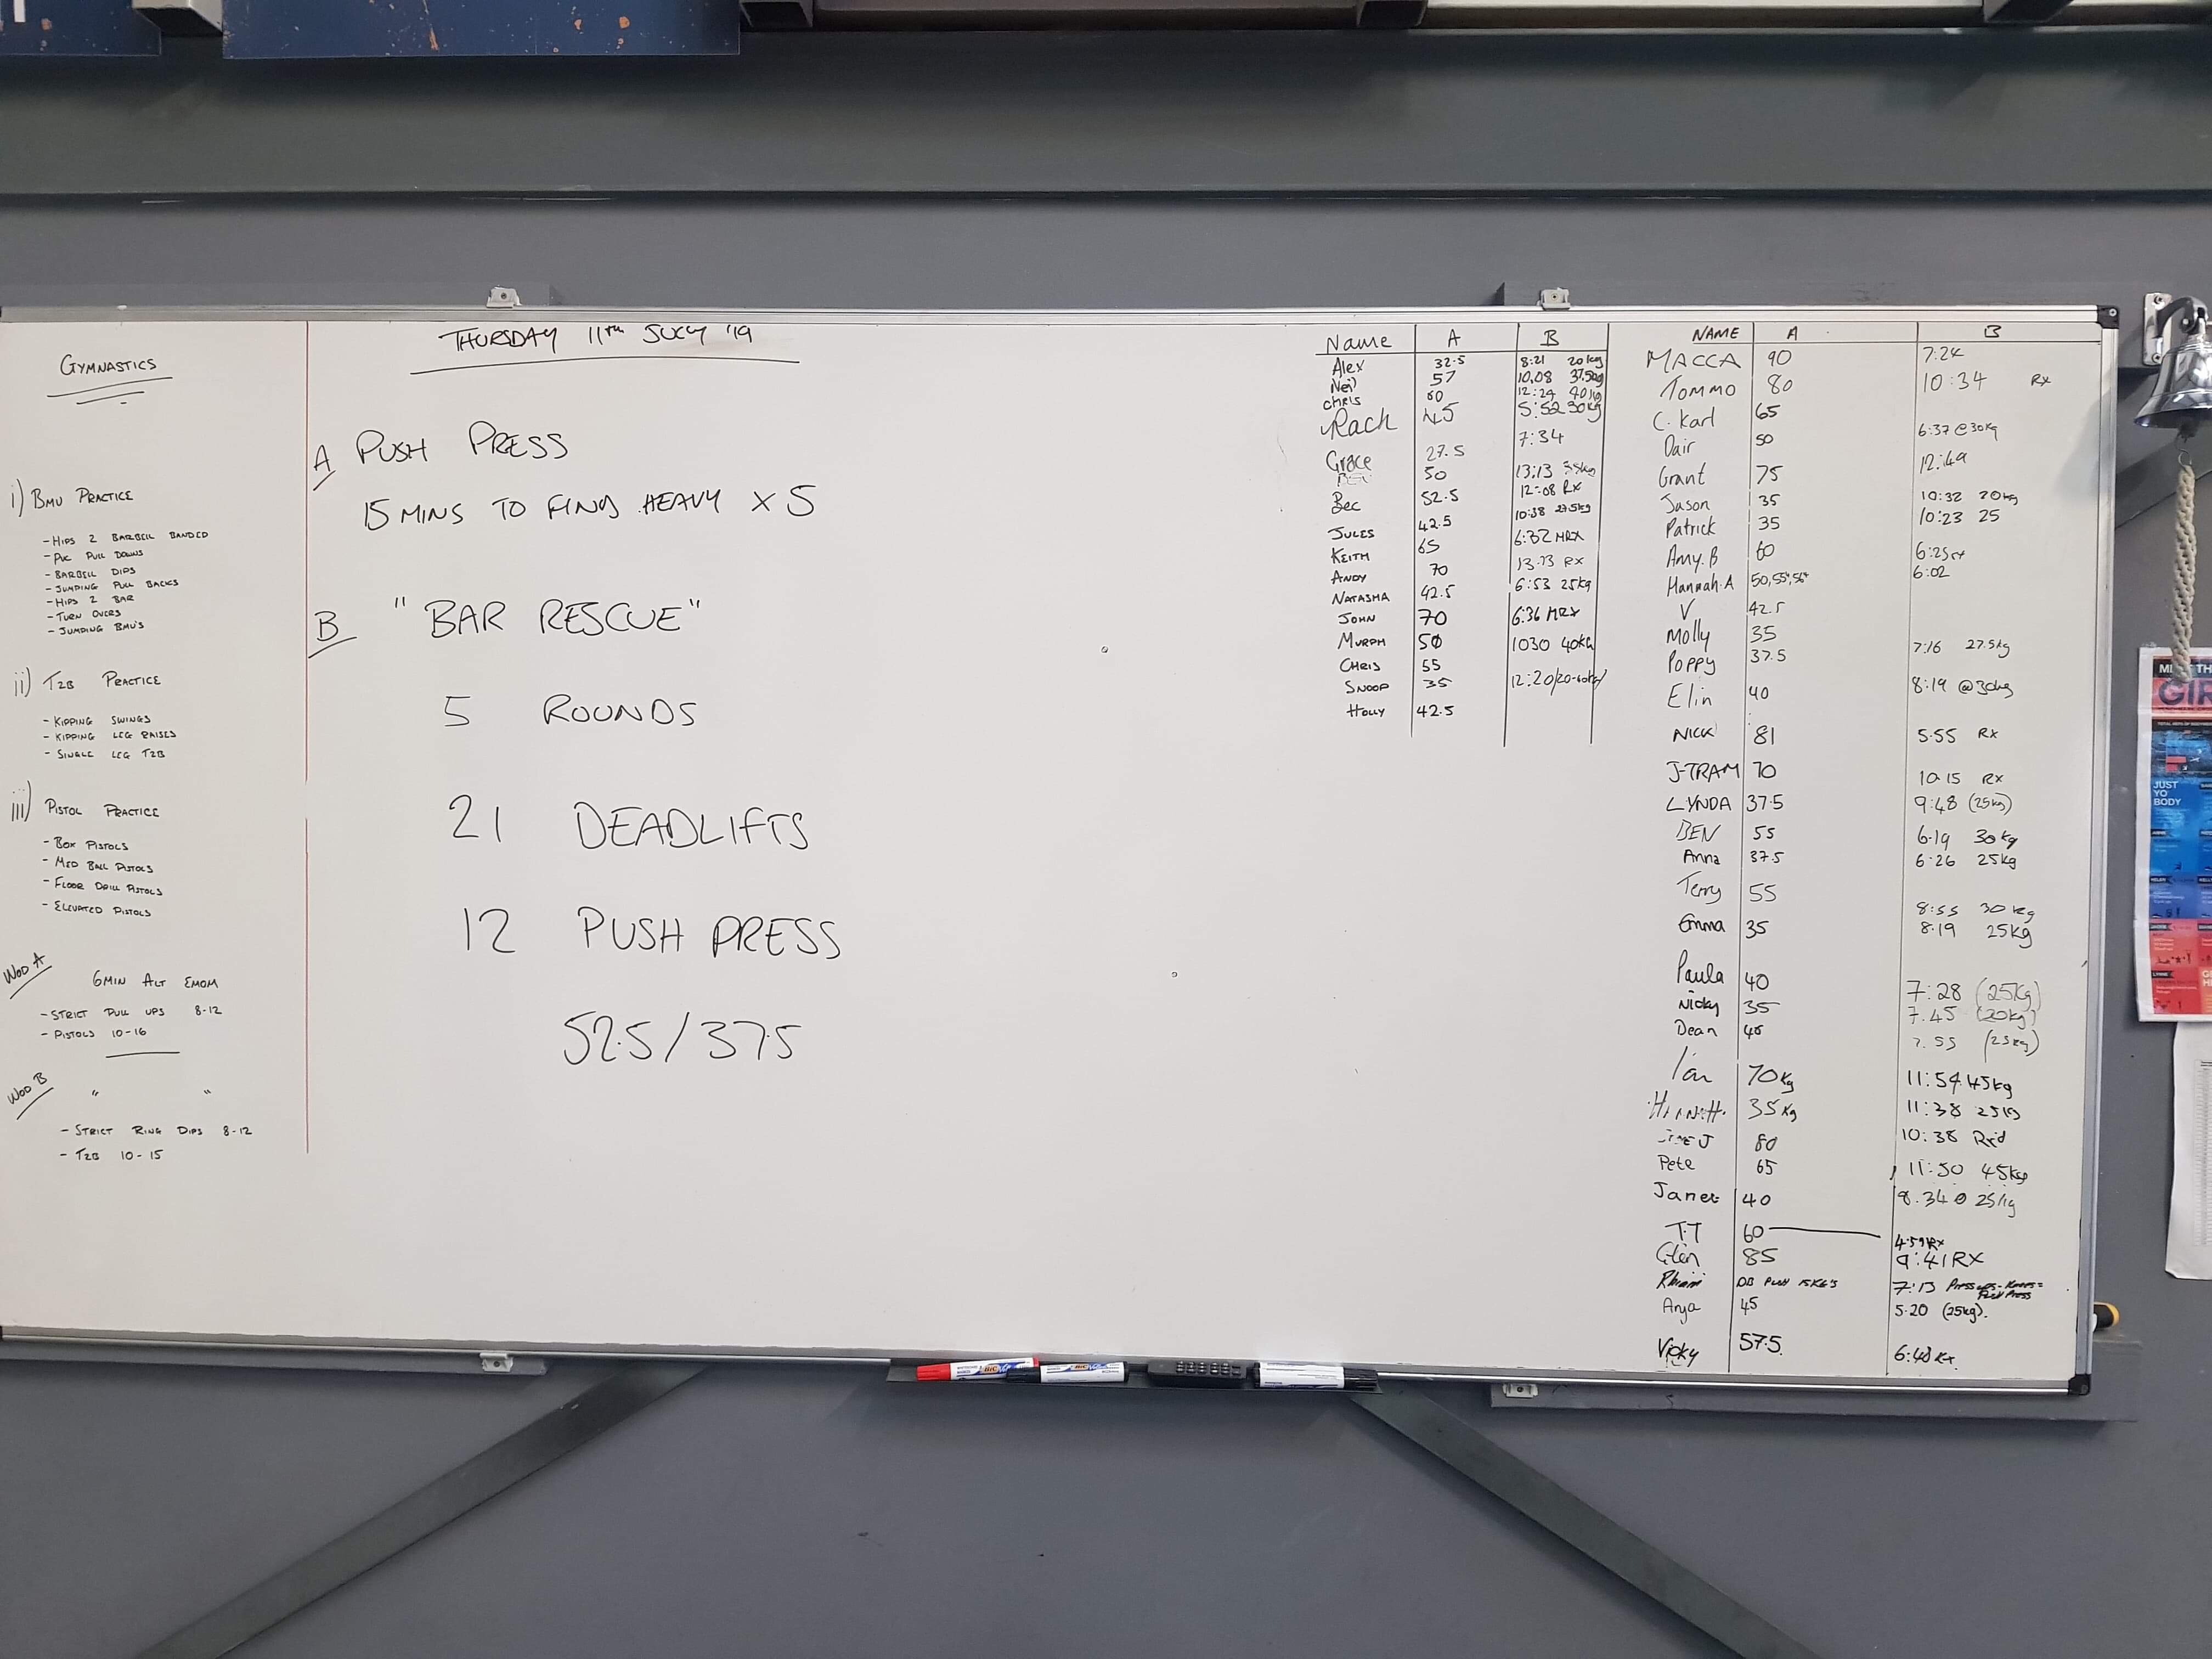 GYMNASTICS
i) BMU PRACTICE
- HIPS 2 BARBELL BANDED
- PVC PULL DOWNS
- BARBELL DIPS
- JUMPING PULL BACKS
- HIPS 2 BAR
- TURN OVERS
- JUMPING BMU'S
ii) T2B PRACTICE
- KIPPING SWINGS
- KIPPING LEG RAISES
- SINGLE LEG T2B
iii) PISTOL PRACTICE
- BOX PISTOLS
- MED BALL PISTOLS
- FLOOR DRILL PISTOLS
- ELEVATED PISTOLS
WOD A
6MIN ALT EMOM
- STRICT PULL UPS 8-12
- PISTOLS 10-16
WOD B
" "
- STRICT RING DIPS 8-12
- T2B 10-15
THURSDAY 11TH JULY '19
A PUSH PRESS
15 MINS TO FIND HEAVY X 5
B "BAR RESCUE"
5 ROUNDS
21 DEADLIFTS
12 PUSH PRESS
52.5/37.5
Name A B
Alex 32.5 8:21 20kg
Neil 57 10.08 37.5kg
CHRIS 60 12:29 40kg
Rach 45 5:52 30kg
Grace 27.5 7:34
50 13:13 35kg
Bec 52.5 12:08 RX
JULES 42.5 10:38 27.5kg
KEITH 65 6:32 MRX
ANDY 70 13.13 RX
NATASHA 42.5 6:53 25kg
JOHN 70 6:36 MRX
MURPH 50 1030 40KG
CHRIS 55
SNOOP 35 12:20/20-60kg
HOLLY 42.5
NAME A B
MACCA 90 7:24
TOMMO 80 10:34 RX
C. Karl 65
Dair 50 6:37 @30kg
Grant 75 12:49
Jason 35 10:32 20kg
Patrick 35 10:23 25
Amy.B 60 6:25 rx
Hannah.A 50, 55, 56 6:02
V 42.5
Molly 35 7:16 27.5kg
Poppy 37.5
Elin 40 8:19 @30kg
NICK 81 5.55 RX
J-TRAM 70 10.15 RX
LYNDA 37.5 9:48 (25kg)
BEN 55 6.19 30kg
Anna 37.5 6:26 25kg
Terry 55 8:55 30kg
Emma 35 8.19 25kg
Paula 40 7:28 (25kg)
Nicky 35 7.45 (20kg)
Dean 45 7.55 (25kg)
Ian 70kg 11:54 45kg
35kg 11:38 25kg
80 10:38 Rx'd
Pete 65 11:50 45kg
Janet 40 8.34 @ 25kg
TT 60 4:59 RX
Glen 85 9:41 RX
DB PUSH 15KG'S 7:13 PUSH PRESS
Anya 45 5.20 (25kg).
Vicky 57.5 6:48 RX
JUST
YO'
BODY